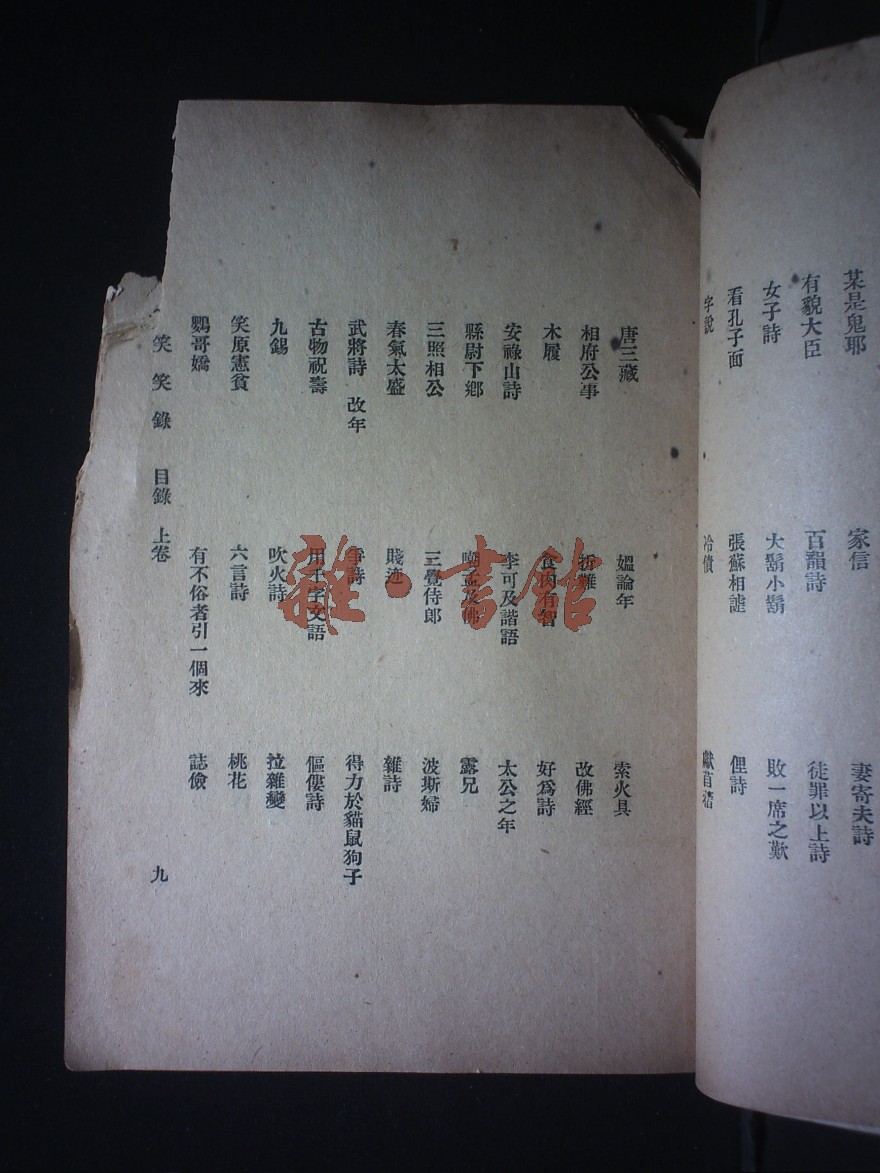 某是鬼耶　家信　妻寄夫詩
有貌大臣　百韻詩　徒罪以上詩
女子詩　大鬍小鬍　敗一席之歎
看孔子面　張蘇相謔　俚詩
字說　冷債　獻苜蓿
唐三藏　媼論年　索火具
相府公事　改佛經
木履　食肉有智　好爲詩
安祿山詩　李可及諧語　太公之年
縣尉下鄉　嘲孟及佛　露兄
三照相公　三覺侍郎　波斯婦
春氣太盛　賤迹　雜詩
武將詩　改年　雪詩　得力於貓鼠狗子
古物祝壽　用千字文語　傴僂詩
九錫　吹火詩　拉雜變
笑原憲貧　六言詩　桃花
鸚哥嬌　有不俗者引一個來　誌儉
笑笑錄　目錄　上卷　九
雜·書館